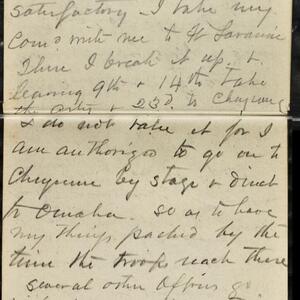 satisfactory I take my
Com'd with me to Ft Laramie
There I break it up, &
leaving 9th & 14th, take
the Arty & 23d. to Cheyenne
I do not take it for I
am authorized to go on to
Cheyenne by stage & direct
to Omaha. so as to have
my things packed by the
time the troops reach there
Several other Officers go